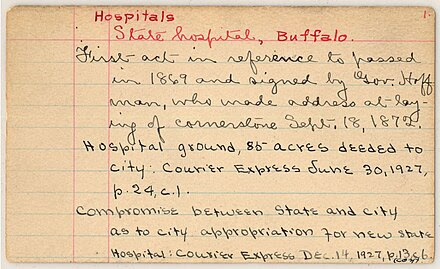 Hospitals 1.
State hospital, Buffalo.
First act in reference to passed
in 1869 and signed by Gov. Hoff
man, who made address at lay-
ing of cornerstone Sept. 18, 1872.
Hospital ground, 85 acres deeded to
city: Courier Express June 30, 1927,
p. 24, c. 1.
Compromise between State and city
as to city appropriation for new state
Hospital: Courier Express Dec. 14, 1927, p. 13, c. 6.